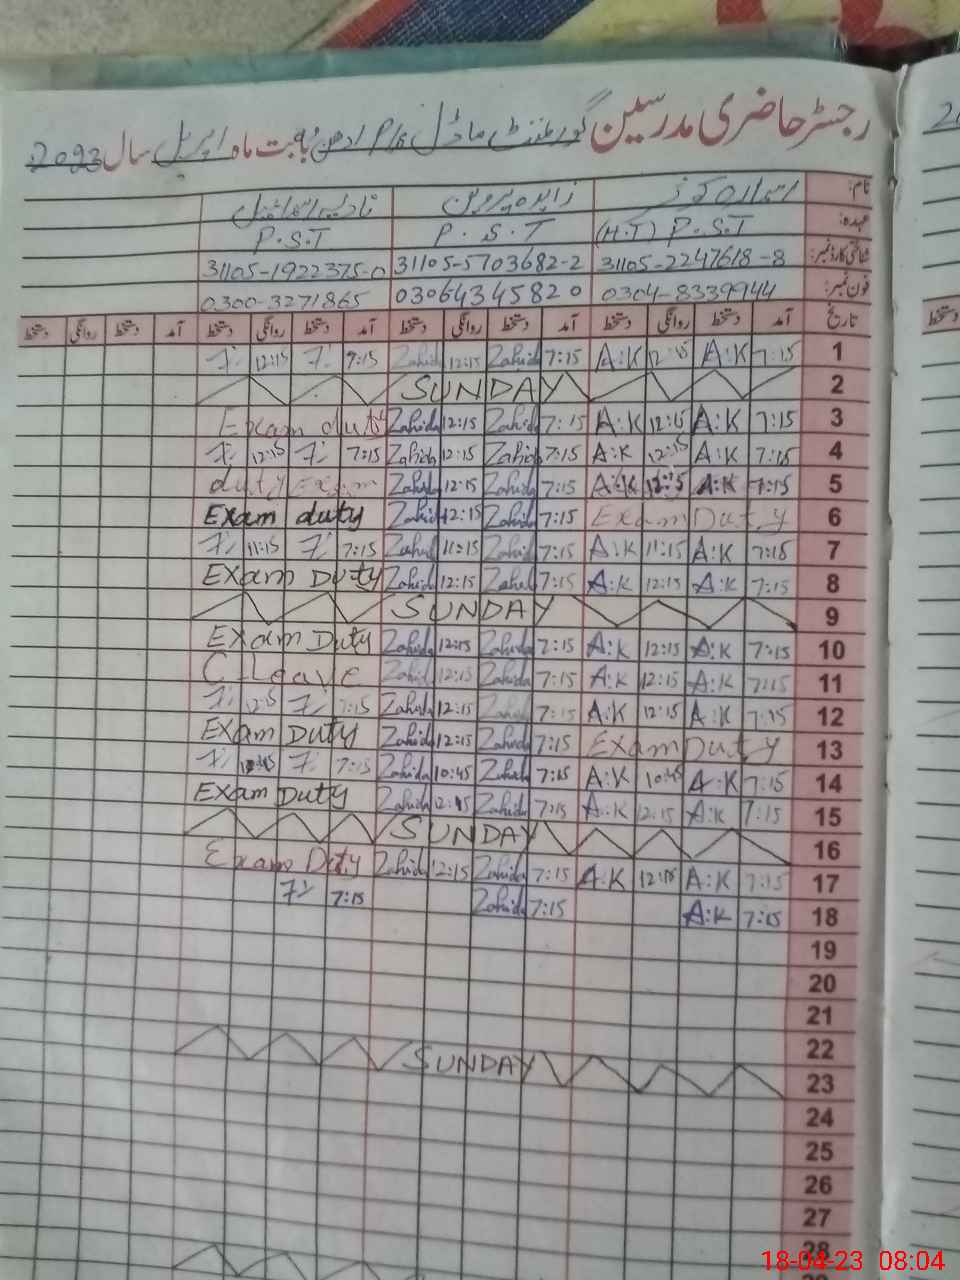 رجسٹر حاضری مدرسین گورنمنٹ ماڈل P/S بابت ماہ اپریل سال 2023
نام:
عہدہ: P.S.T (H.T) P.S.T P.S.T
شناختی کارڈ نمبر: 31105-2247618-8 31105-5703682-2 31105-1922375-0
فون نمبر: 0304-8339944 03064345820 0300-3271865
تاریخ آمد دستخط روانگی دستخط آمد دستخط روانگی دستخط آمد دستخط روانگی دستخط آمد دستخط روانگی دستخط
12:15 9:15 Zahida 12:15 Zahida 7:15 A:K 12:15 A:K 7:15 1
SUNDAY 2
Exam duty Zahida 12:15 Zahida 7:15 A:K 12:15 A:K 7:15 3
12:15 7:15 Zahida 12:15 Zahida 7:15 A:K 12:15 A:K 7:15 4
duty Exam Zahida 12:15 Zahida 7:15 A:K 12:15 A:K 7:15 5
Exam duty Zahida 12:15 Zahida 7:15 Exam Duty 6
11:15 7:15 Zahida 11:15 Zahida 7:15 A:K 11:15 A:K 7:15 7
Exam Duty Zahida 12:15 Zahida 7:15 A:K 12:15 A:K 7:15 8
SUNDAY 9
Exam Duty Zahida 12:15 Zahida 7:15 A:K 12:15 A:K 7:15 10
C-Leave Zahida 12:15 Zahida 7:15 A:K 12:15 A:K 7:15 11
12:15 7:15 Zahida 12:15 Zahida 7:15 A:K 12:15 A:K 7:15 12
Exam Duty Zahida 12:15 Zahida 7:15 Exam Duty 13
10:45 7:15 Zahida 10:45 Zahida 7:15 A:K 10:45 A:K 7:15 14
Exam Duty Zahida 12:15 Zahida 7:15 A:K 12:15 A:K 7:15 15
SUNDAY 16
Exam Duty Zahida 12:15 Zahida 7:15 A:K 12:15 A:K 7:15 17
7:15 Zahida 7:15 A:K 7:15 18
19
20
21
22
SUNDAY 23
24
25
26
27
28
18-04-23 08:04